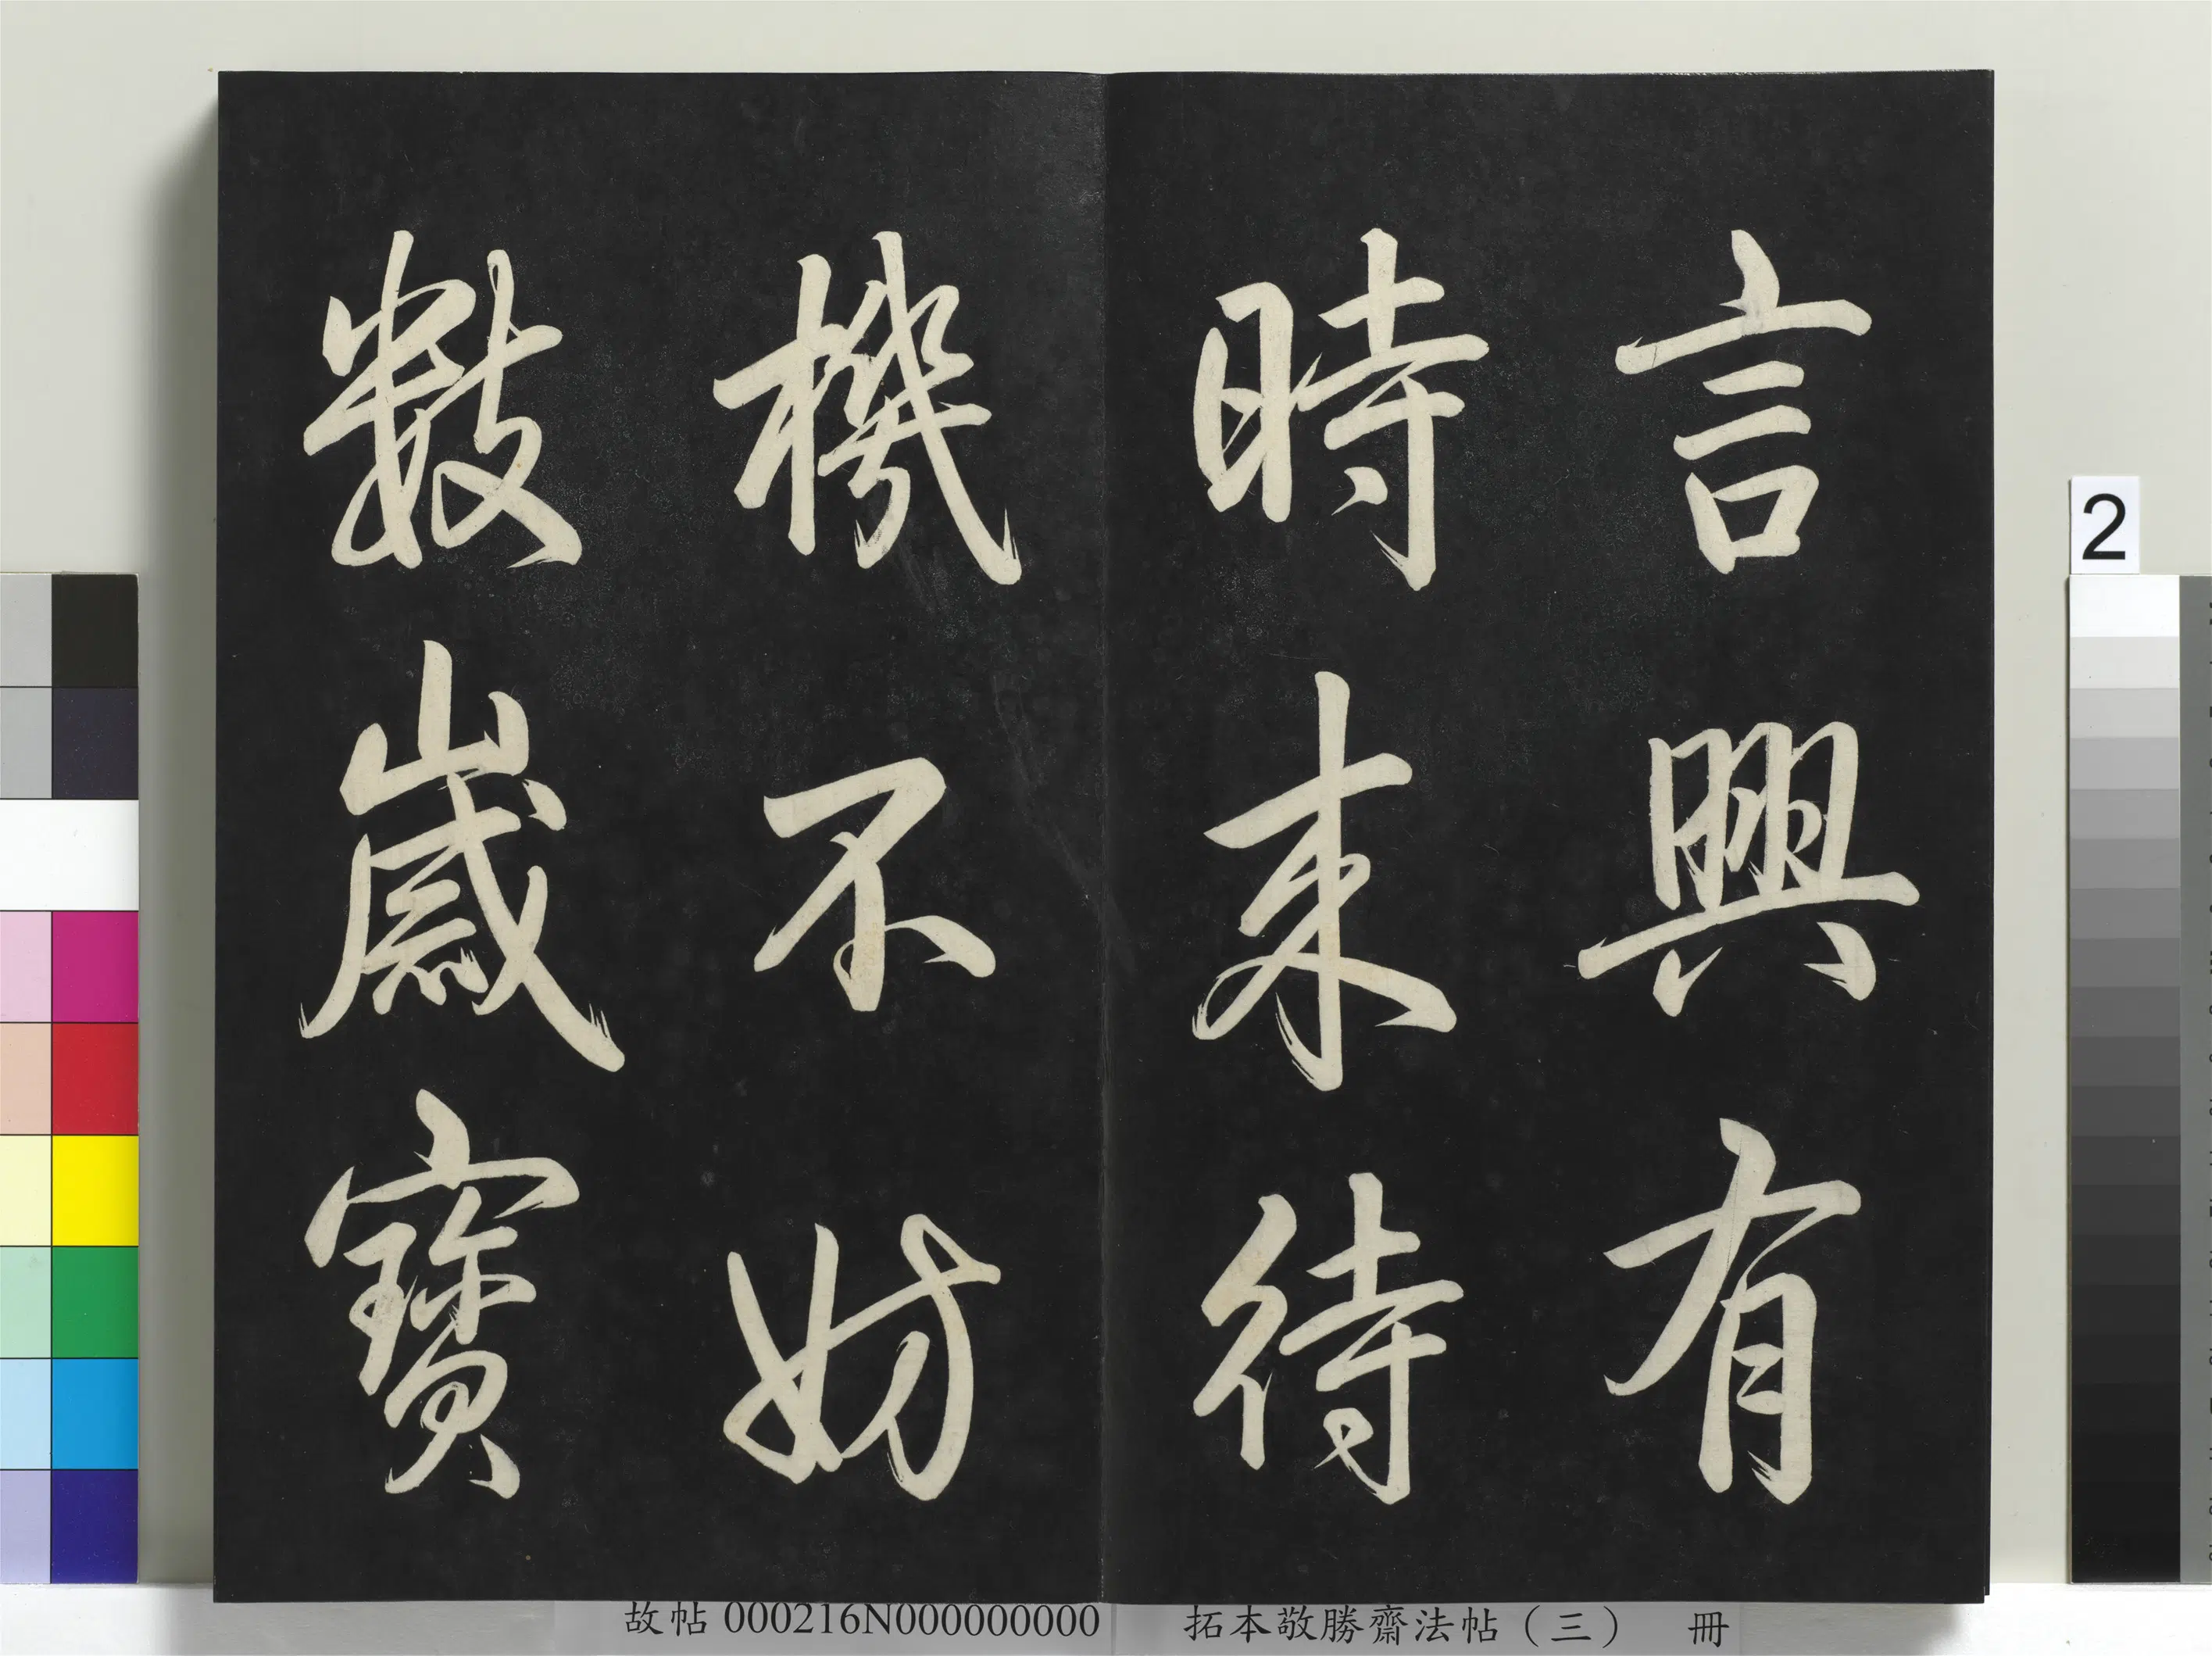 言興有
時來待
機不妨
數歲寶
2
故帖 000216N000000000
拓本敬勝齋法帖（三） 冊